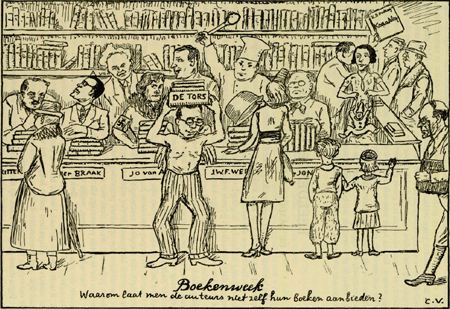 DE TORS
BRAAK
JO van A
J.W.F. WE
JON
Boekenweek
Waarom laat men de auteurs niet zelf hun boeken aanbieden?
C.V.